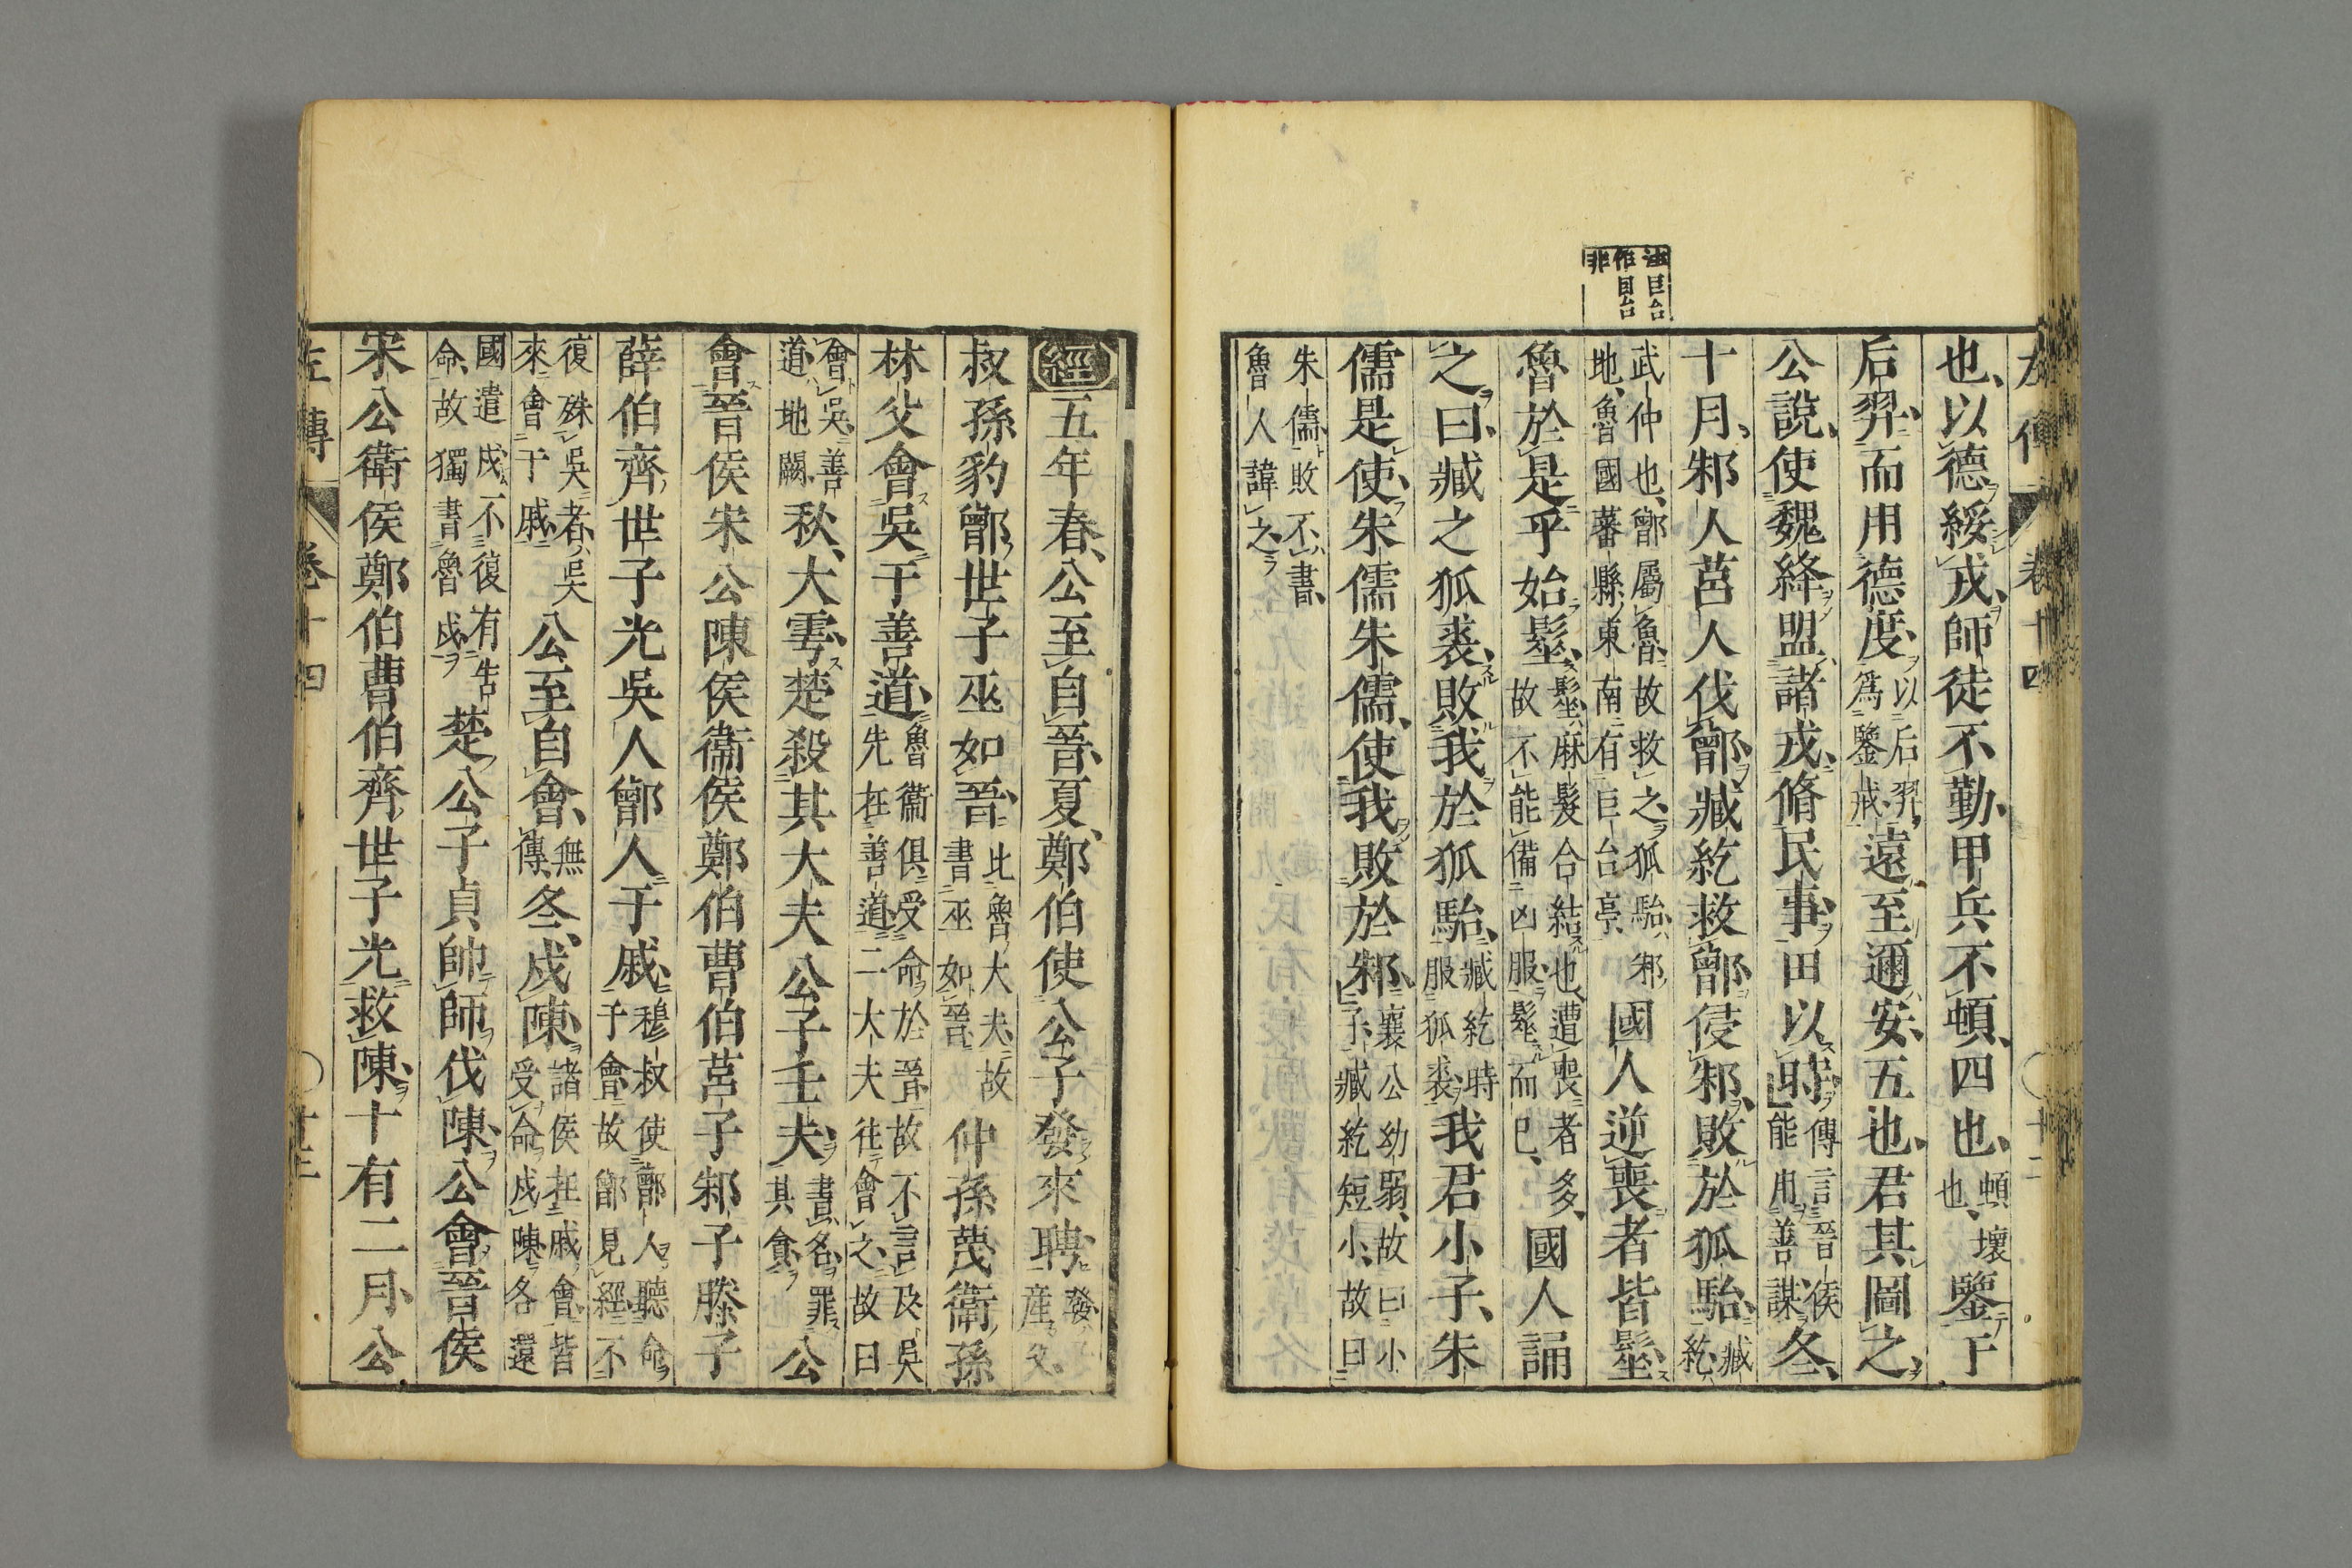 左傳 卷十四 〇 十二
也以德綏戎師徒不勤甲兵不頓四也頓壞也鑒于
后羿而用德度以后羿爲鑒戒遠至邇安五也君其圖之
公說使魏絳盟諸戎脩民事田以時傳言晉侯能用善謀冬
十月邾人莒人伐鄫臧紇救鄫侵邾敗於狐駘臧紇
武仲也鄫屬魯故救之狐駘邾地魯國蕃縣東南有目台亭國人逆喪者皆髽
魯於是乎始髽髽麻髮合結也遭喪者多故不能備凶服髽而已國人誦
之曰臧之狐裘敗我於狐駘臧紇時服狐裘我君小子朱
儒是使朱儒朱儒使我敗於邾襄公幼弱故曰小子臧紇短小故曰
朱儒敗不書魯人諱之
註目台
作目台
非
經五年春公至自晉夏鄭伯使公子發來聘發子產父
叔孫豹鄫世子巫如晉比魯大夫故書巫如晉仲孫蔑衛孫
林父會吳于善道魯衞俱受命於晉故不言及吳先在善道二大夫往會之故曰
會吳善道地闕秋大雩楚殺其大夫公子壬夫書名罪其貪公
會晉侯宋公陳侯衞侯鄭伯曹伯莒子邾子滕子
薛伯齊世子光吳人鄫人于戚穆叔使鄫人聽命于會故鄫見經不
復殊吳者吳來會于戚公至自會無傳冬戍陳諸侯在戚會皆受命戍陳各還
國遣戍不復有告命故獨書魯戍楚公子貞帥師伐陳公會晉侯
宋公衛侯鄭伯曹伯齊世子光救陳十有二月公
左傳 卷十四 〇 十三